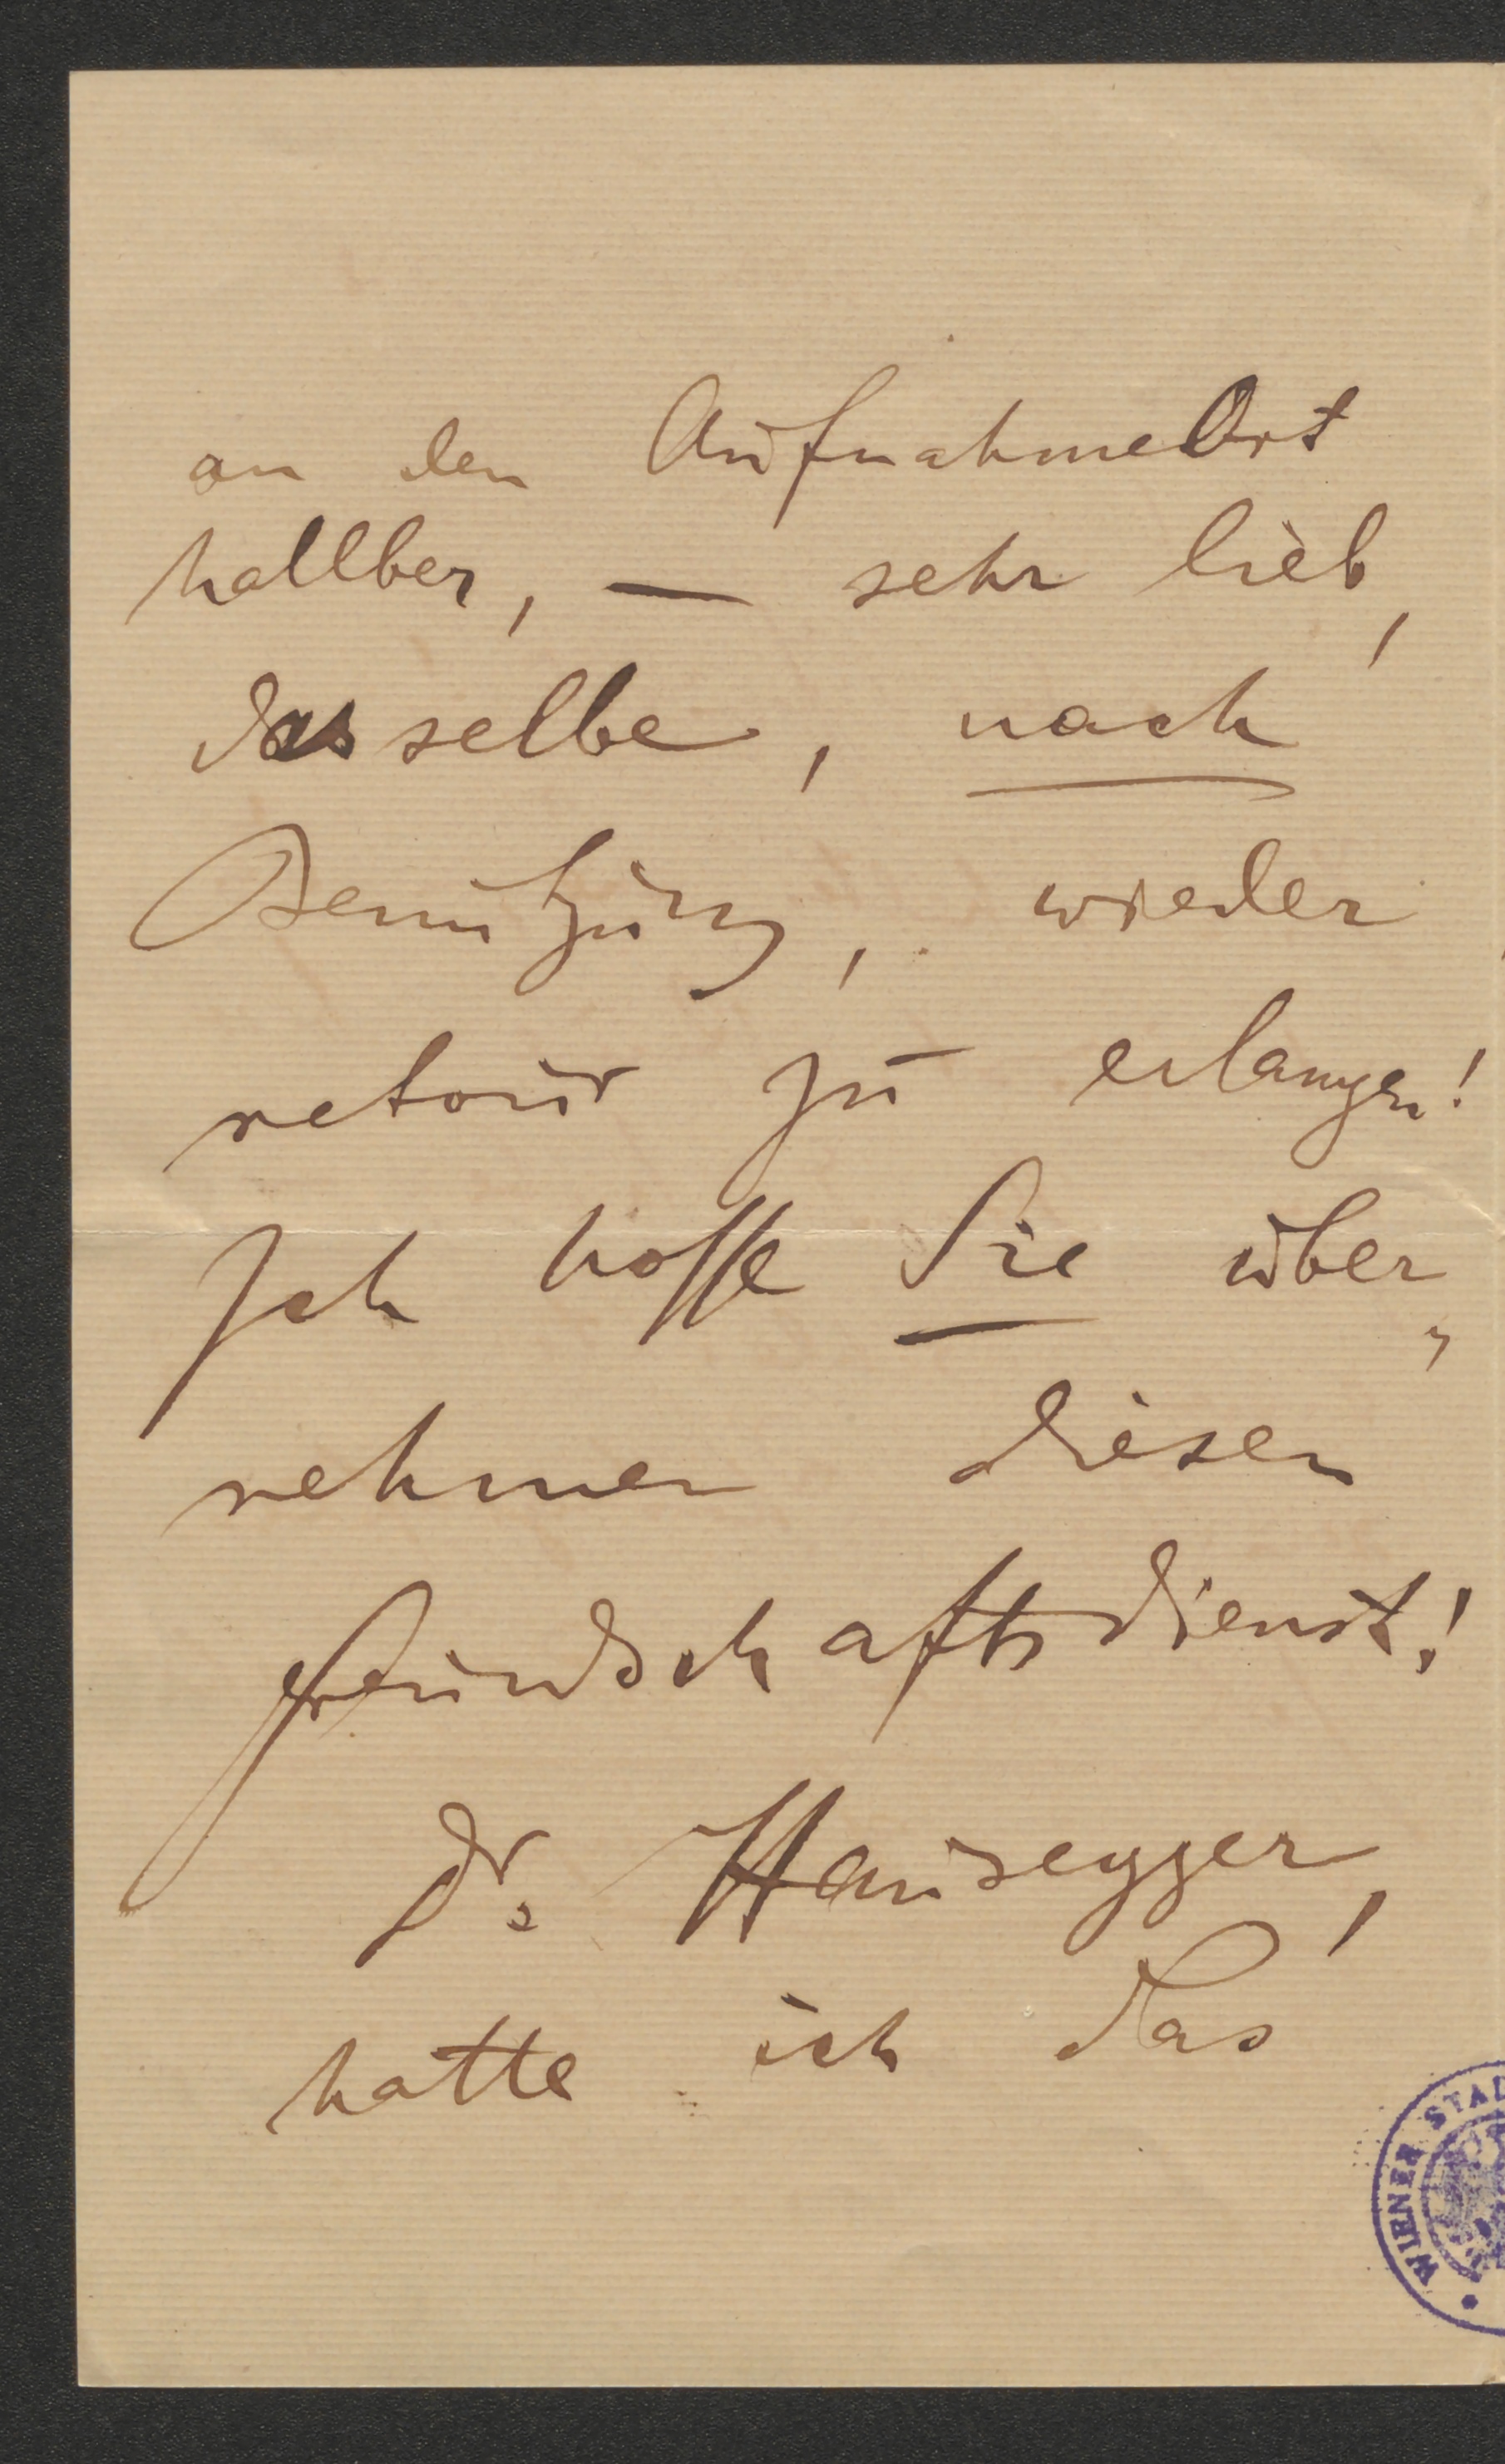 an den AufnahmeOrt
hallber, — sehr lieb,
dasselbe, nach
Benützung, wieder
retour zu erlangen!
Ich hoffe Sie über„
nehmen diesen
freundschaftsdienst!
Dr. Hausegger,
hatte ich das
WIENER STAD